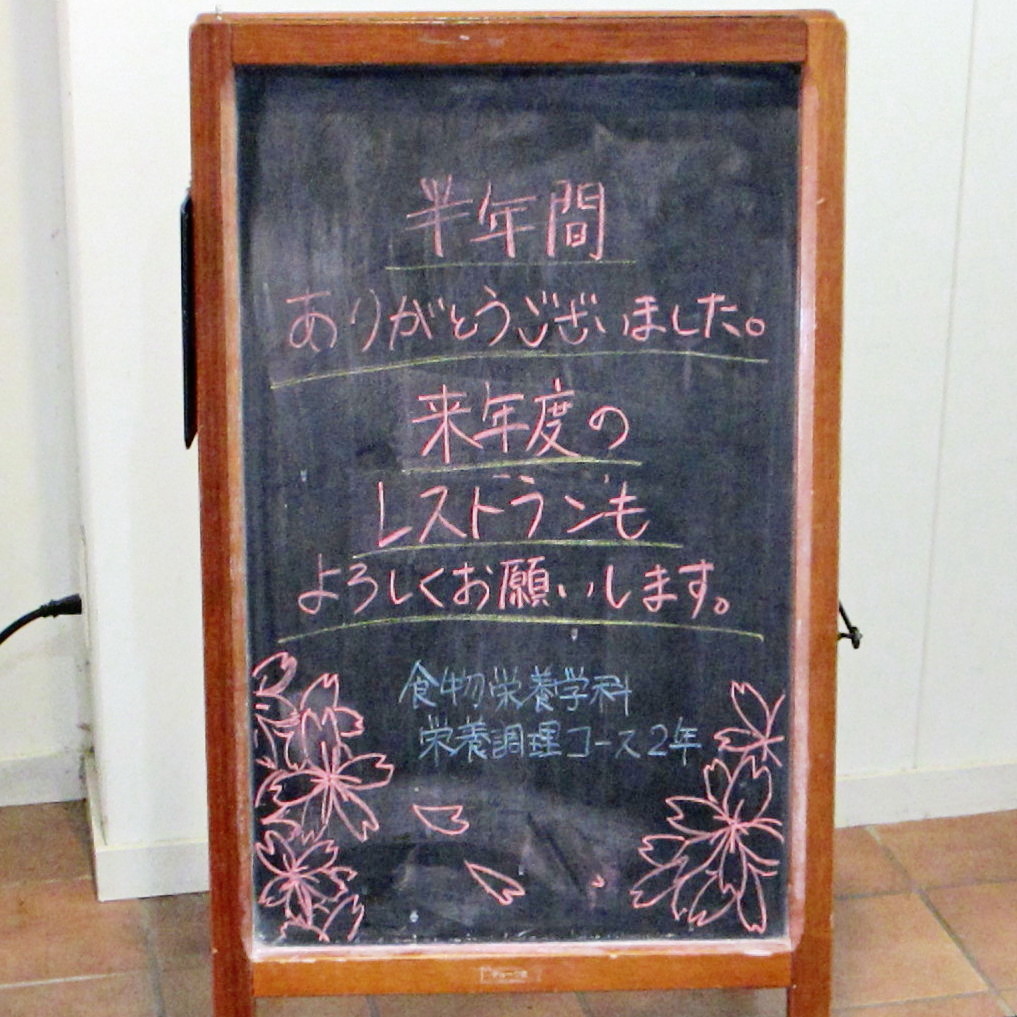 半年間
ありがとうございました。
来年度の
レストランも
よろしくお願いします。
食物栄養学科
栄養調理コース2年